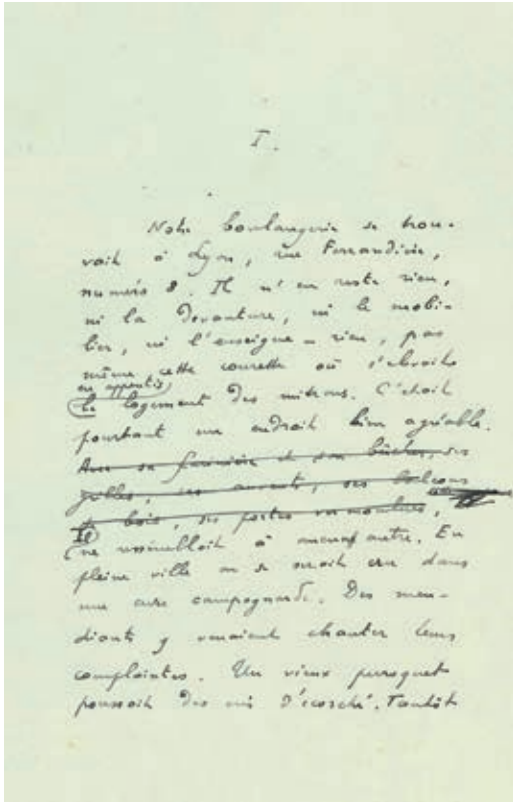 I.
Notre boulangerie se trou-
vait à Lyon, rue Ferrandière,
numéro 8. Il n'en reste rien,
ni la devanture, ni le mobi-
lier, ni l'enseigne – rien, pas
même cette courette où s'abritait
en appentis
le logement des mitrons. C'était
pourtant un endroit bien agréable.
Avec sa farinière et son bûcher, ses
grilles, ses auvents, ses balcons
de bois, ses portes vermoulues,
Il
ne ressemblait à aucun autre. En
pleine ville on se serait cru dans
une cure campagnarde. Des men-
diants y venaient chanter leurs
complaintes. Un vieux perroquet
poussait des cris d'écorché. Tantôt